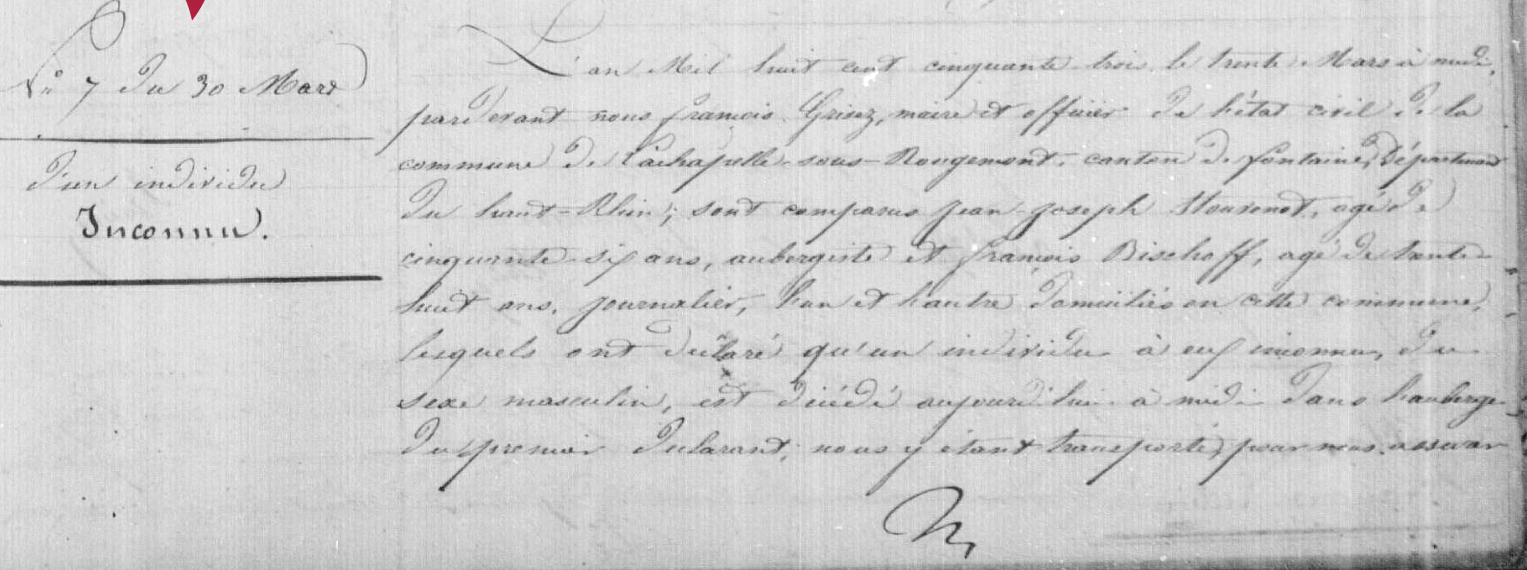 N° 7 du 30 Mars
d'un individu
Inconnu.
L'an Mil huit cent cinquante trois le trente Mars à midi,
pardevant nous françois Grisez, maire et officier de l'état civil de la
commune de Lachapelle-sous-Rougemont, canton de fontaine, Département
du haut-Rhin; sont comparus Jean-Joseph, agé de
cinquante-six ans, aubergiste et françois Bischoff, agé de trente
huit ans, journalier, l'un et l'autre domiciliés en cette commune,
lesquels ont déclaré qu'un individu à eux inconnu, du
sexe masculin, est décédé aujourd'hui à midi dans l'auberge
du premier déclarant; nous y étant transporté pour nous assurer